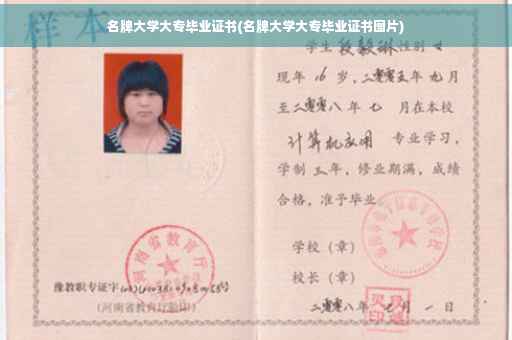 名牌大学大专毕业证书(名牌大学大专毕业证书图片)
样本
学生 段毅琳 性别 女
现年 16 岁，二零零五年 九 月
至二零零八年 七 月在本校
计算机应用 专业学习，
学制 三 年，修业期满，成绩
合格，准予毕业。
学校（章）
校长（章）
二零零八年 月 一 日
河南省教育厅
豫教职专证字
(河南省教育厅验印)